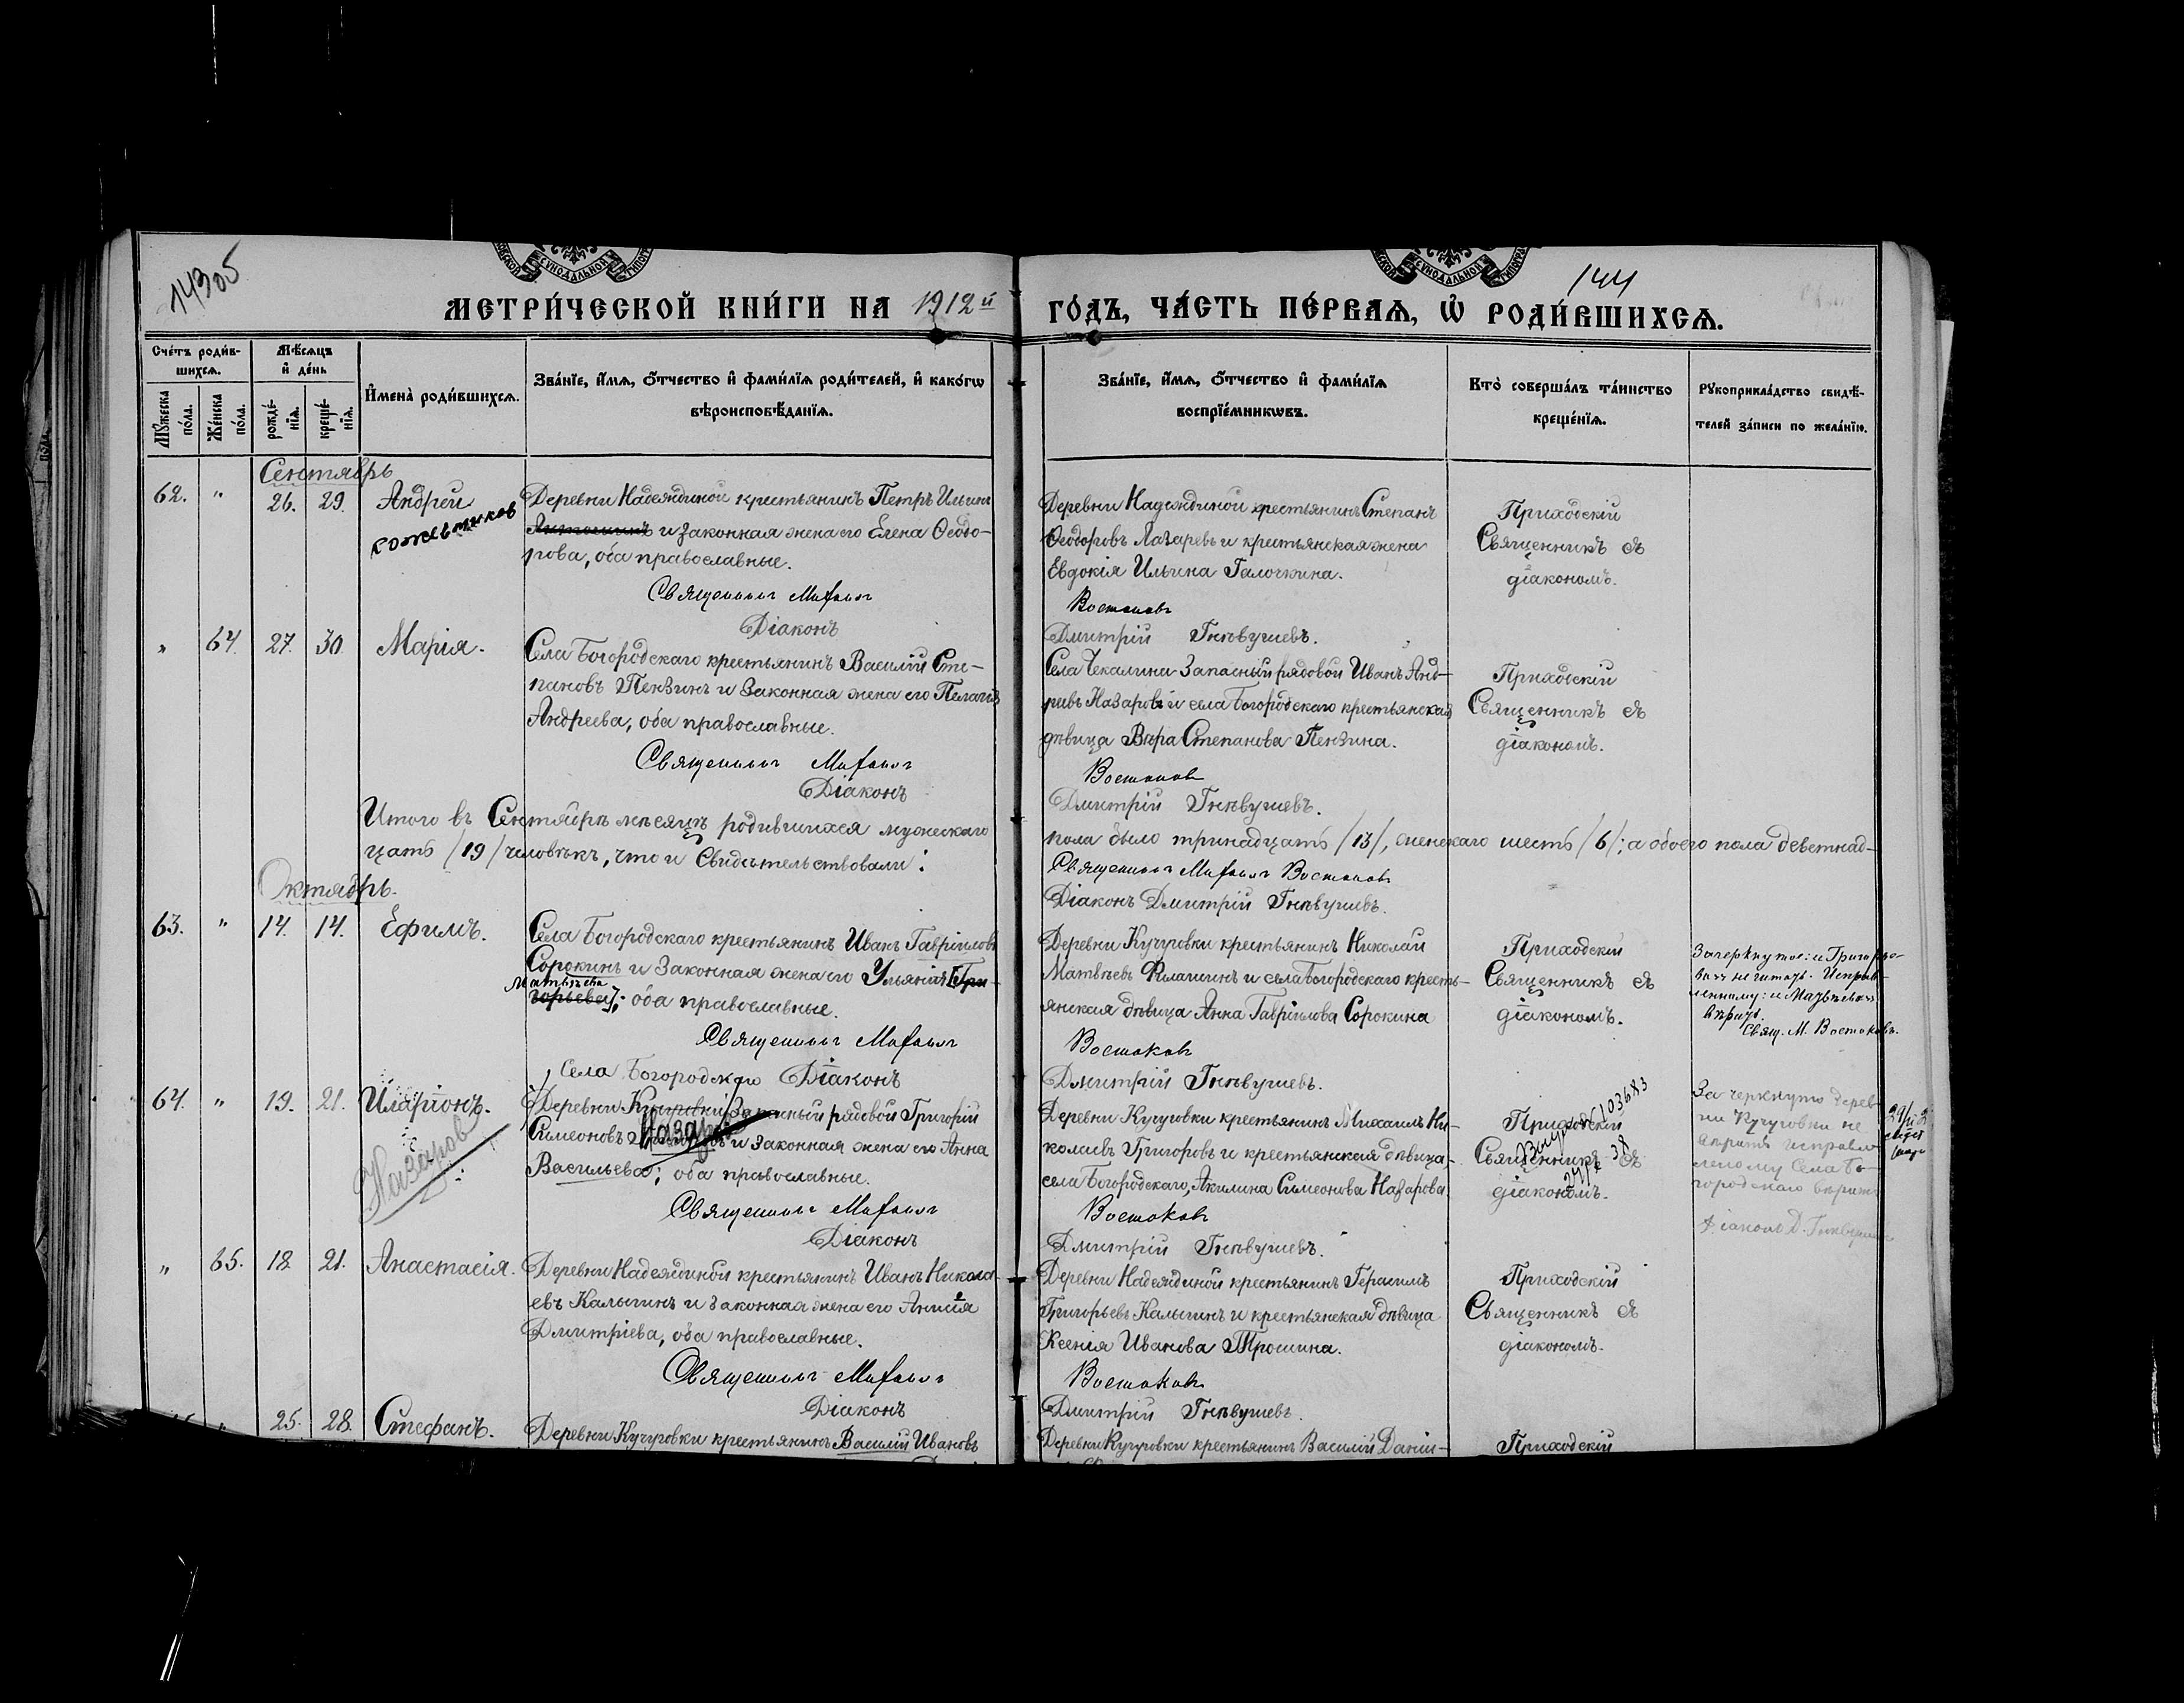 14305
144
МЕТРИ́ЧЕСКОЙ КНИ́ГИ НА 1912й ГО́ДЪ, ЧА́СТЬ ПЕ́РВАѦ, Ѡ РОДИ́ВШИХСѦ.
Сче́тъ роди́в-
шихсѧ.
Мѣ́сѧцъ
и де́нь
Мꙋ́жеска
по́ла.
Же́нска
по́ла.
рожде́-
нїѧ.
креще́-
нїѧ.
Имена̀ роди́вшихсѧ.
Зва́нїе, и́мѧ, о́тчество и фами́лїѧ роди́телей, и како́гѡ
вѣроисповѣ́данїѧ.
Зва́нїе, и́мѧ, о́тчество и фами́лїѧ
воспрїе́мникѡвъ.
Кто̀ соверша́лъ та́инство
креще́нїѧ.
Рꙋкоприкла́дство свидѣ́-
телей за́писи по жела́нїю.
Сентябрь
62. " 26. 29. Андрей
Кожевников
Деревни Надеждиной крестьянинъ Петръ Ильинъ
и законная жена его Елена Ѳеодо-
рова, оба православные.
Священникъ Михаилъ
Діаконъ
Деревни Надеждиной крестьянинъ Степанъ
Ѳеодоровъ Лазаревъ и крестьянская жена
Евдокія Ильина Галочкина.
Востоковъ
Дмитрій Гнѣвушевъ.
Приходскій
Священникъ съ
діакономъ.
" 64. 27. 30. Марія.
Села Богородскаго крестьянинъ Василій Сте-
пановъ Пензинъ и законная жена его Пелагія
Андреева, оба православные.
Священникъ Михаилъ
Діаконъ
Села Чекалина запасный рядовой Иванъ Анд-
реевъ Назаровъ и села Богородскаго крестьянская
дѣвица Вѣра Степанова Пензина.
Востоковъ
Дмитрій Гнѣвушевъ.
Приходскій
Священникъ съ
діакономъ.
Итого въ Сентябрѣ мѣсяцѣ родившихся мужескаго пола было тринадцать /13/, женскаго шесть /6/; а обоего пола деветнад-
цать /19/ человѣкъ, что и свидѣтельствовали:
Священникъ Михаилъ Востоковъ
Діаконъ Дмитрій Гнѣвушевъ.
Октябрь.
63. " 14. 14. Ефимъ.
Села Богородскаго крестьянинъ Иванъ Гавріиловъ
Сорокинъ и законная жена его Ульянія [Гри-
Матвѣева
горьева]; оба православные.
Священникъ Михаилъ
Діаконъ
Деревни Кучуровки крестьянинъ Николай
Матвѣевъ и села Богородскаго кресть-
янская дѣвица Анна Гавріилова Сорокина
Востоковъ
Дмитрій Гнѣвушевъ.
Приходскій
Священникъ съ
діакономъ.
Зачеркнутое: и Григорье-
ва не читать. Исправ-
ленному: и Матвѣева
вѣрить.
Свящ. М. Востоковъ.
64. " 19. 21. Иларіонъ.
Назаров
Села Богородскаго
Деревни Кучуровки запасный рядовой Григорій
Назаровъ
Симеоновъ и законная жена его Анна
Васильева; оба православные.
Священникъ Михаилъ
Діаконъ
Деревни Кучуровки крестьянинъ Михаилъ Ни-
колаевъ Григоровъ и крестьянская дѣвица
села Богородскаго, Акилина Симеонова Назарова.
Востоковъ
Дмитрій Гнѣвушевъ.
Приходскій
Священникъ съ
діакономъ.
103683
Зачеркнуто дерев-
ни Кучуровки не
вѣрить исправ-
леному Села Бо-
городскаго вѣрить
Діаконъ Д. Гнѣвушевъ
" 65. 18. 21. Анастасія.
Деревни Надеждиной крестьянинъ Иванъ Никола-
евъ Калыгинъ и законная жена его Анисія
Дмитріева, оба православные.
Священникъ Михаилъ
Діаконъ
Деревни Надеждиной крестьянинъ Герасимъ
Григорьевъ Калыгинъ и крестьянская дѣвица
Ксенія Иванова Трошина.
Востоковъ
Дмитрій Гнѣвушевъ.
Приходскій
Священникъ съ
діакономъ.
25. 28. Стефанъ.
Деревни Кучуровки крестьянинъ Василій Ивановъ
Деревни Кучуровки крестьянинъ Василій Даніи-
Приходскій